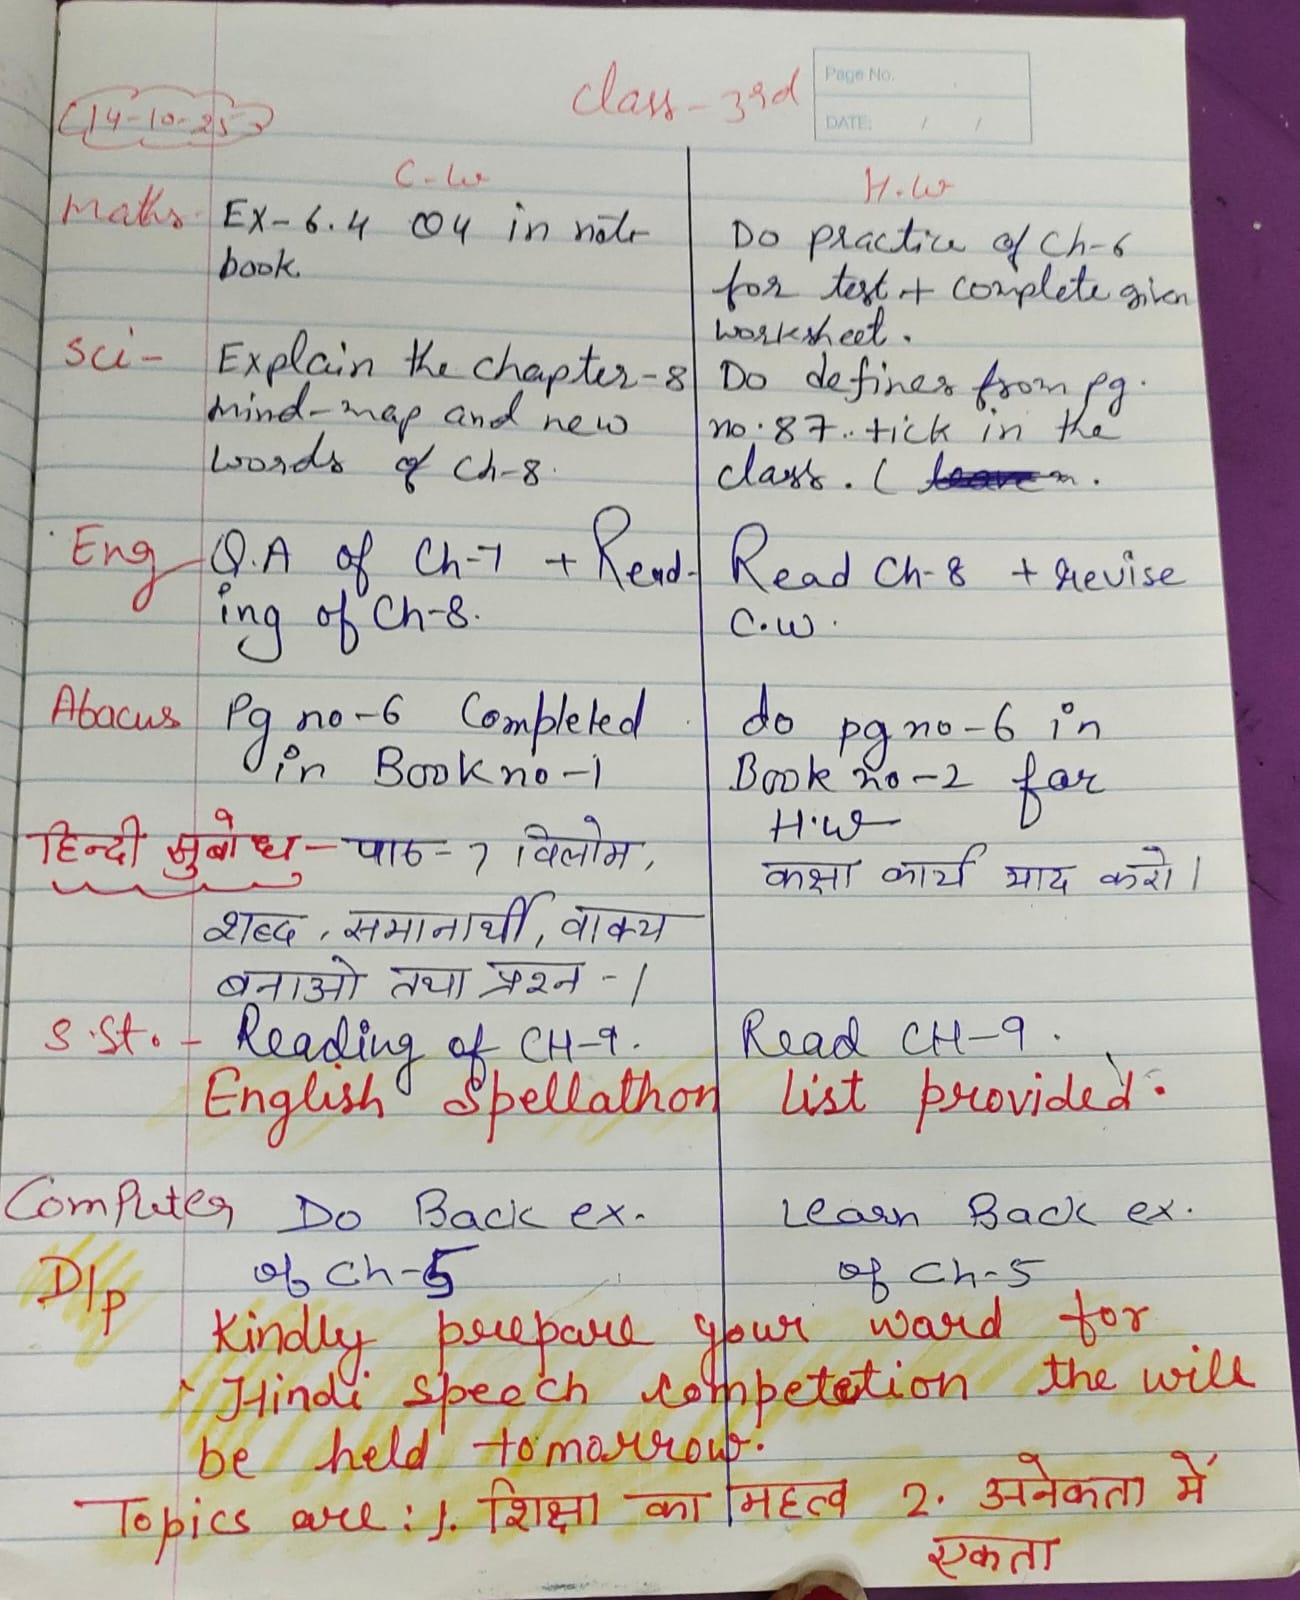 (14-10-25)
Class - 3rd
Page No.
DATE: / /
C.W
H.W
Maths- Ex-6.4 Q4 in note
book.
Do practice of Ch-6
for test + complete given
worksheet.
Sci- Explain the chapter-8
mind-map and new
words of Ch-8.
Do defines from pg.
no. 87. tick in the
class. (
Eng- Q.A of Ch-7 + Read-
ing of Ch-8.
Read Ch-8 + revise
C.W.
Abacus Pg no-6 Completed
in Book no-1
do pg no-6 in
Book no-2 for
H.W
हिन्दी सुबोध - पाठ-7 विलोम,
शब्द, समानार्थी, वाक्य
बनाओ तथा प्रश्न-1
कक्षा कार्य याद करो।
S.St. - Reading of CH-9.
Read CH-9.
English Spellathon List provided.
Computer Do Back ex.
of Ch-5
Learn Back ex.
of Ch-5
D/p
Kindly prepare your ward for
Hindi speech competetion the will
be held tomorrow.
Topics are: 1. शिक्षा का महत्व 2. अनेकता में
एकता